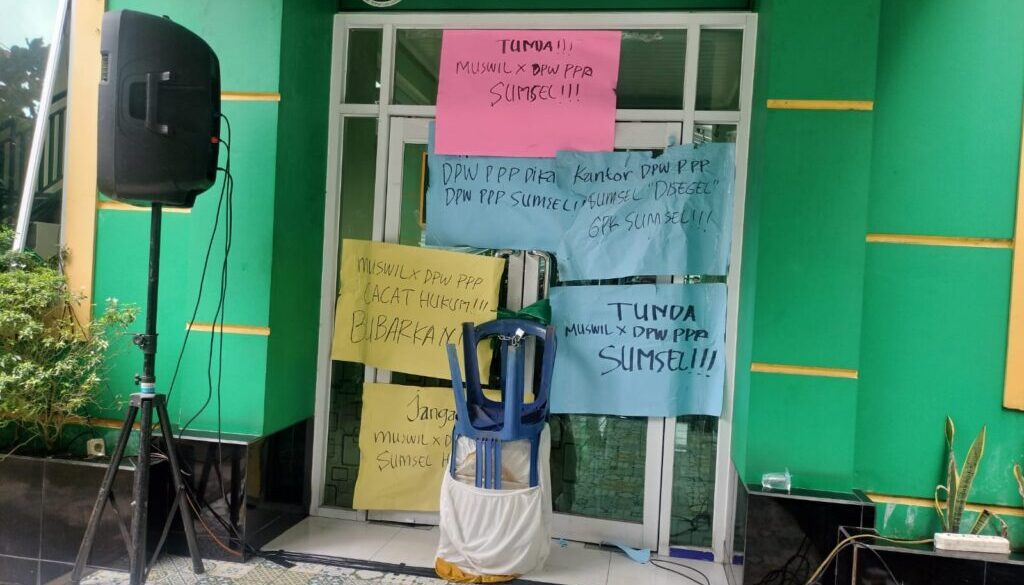 TUNDA!!!
MUSWIL X DPW PPP
SUMSEL!!!
DPW PPP Dika
DPW PPP SUMSEL!!
Kantor DPW PPP
SUMSEL "DISEGEL"
GPK SUMSEL!!!
MUSWIL X DPW PPP
CACAT HUKUM!!!
BUBARKAN
TUNDA
MUSWIL X DPW PPP
SUMSEL!!!
Janga
MUSWIL X D
SUMSEL H